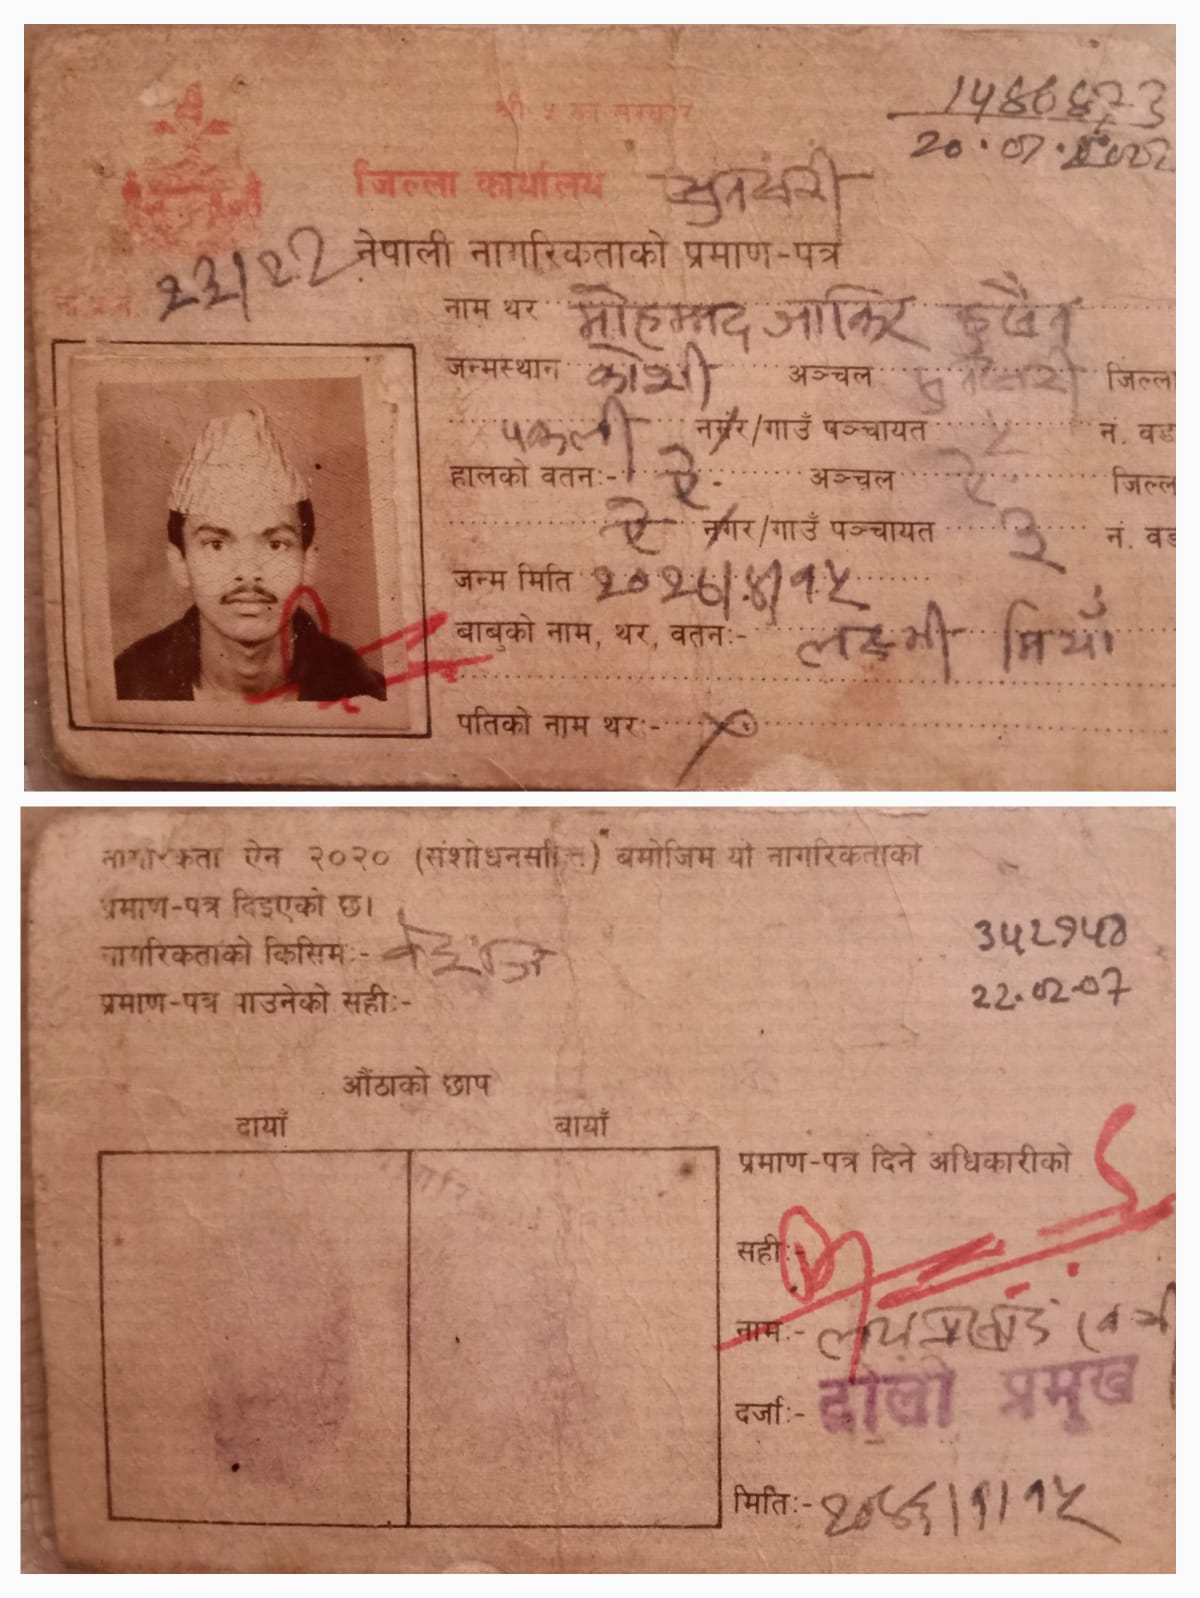 श्री ५ को सरकार
1486873
20.07.2022
जिल्ला कार्यालय सुनसरी
नेपाली नागरिकताको प्रमाण-पत्र
ना.प्र.नं. २२/22
नाम थर मोहम्मद जाकिर हुसैन
जन्मस्थान कोशी अञ्चल सुनसरी जिल्ला
पकली नगर/गाउँ पञ्चायत नं. वडा
हालको वतन:- ऐ. अञ्चल ऐ. जिल्ला
ऐ नगर/गाउँ पञ्चायत ३ नं. वडा
जन्म मिति २०२६/४/१५
बाबुको नाम, थर, वतन:- लक्ष्मी मियाँ
पतिको नाम थर:- ×
नागरिकता ऐन २०२० (संशोधनसहित) बमोजिम यो नागरिकताको
प्रमाण-पत्र दिइएको छ।
नागरिकताको किसिम:- वंशज
प्रमाण-पत्र पाउनेको सही:-
342940
22.02.07
औंठाको छाप
दायाँ बायाँ
प्रमाण-पत्र दिने अधिकारीको
सही:-
नाम:-
दर्जा:- टोली प्रमुख
मिति:- २०४६/१/१५